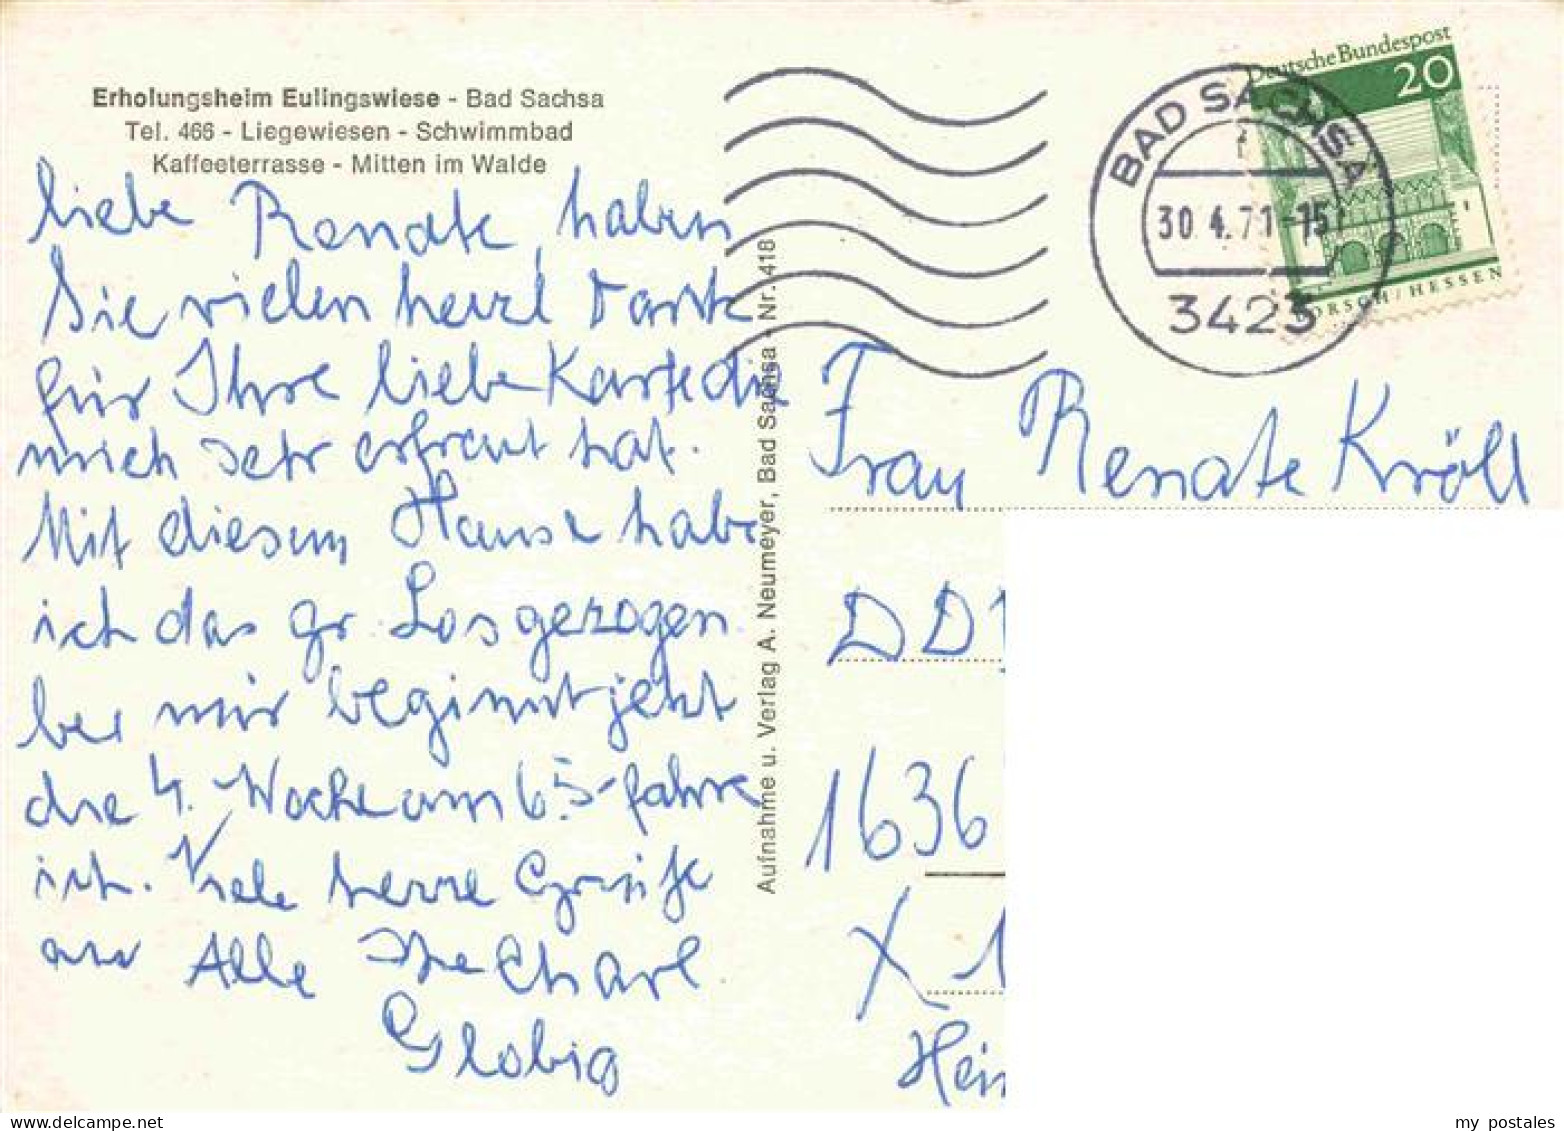 Erholungsheim Eulingswiese - Bad Sachsa
Tel. 466 - Liegewiesen - Schwimmbad
Kaffeeterrasse - Mitten im Walde
liebe Renate, haben
Sie vielen herzl Dank
für Ihre liebe Karte die
mich sehr erfreut hat.
Mit diesem Hause habe
ich das gr. Los gezogen
bei mir beginnt jetzt
die 4. Woche am 6.5.
ich. Viele Grüße
an Alle Ihe Charl
Globig
Aufnahme u. Verlag A. Neumeyer, Bad Sachsa - Nr. 418
BAD SACHSA
30.4.71-15
3423
Deutsche Bundespost
20
LORSCH/HESSEN
Frau Renate Kröll
DD
1636
X 1
Hein
my postales